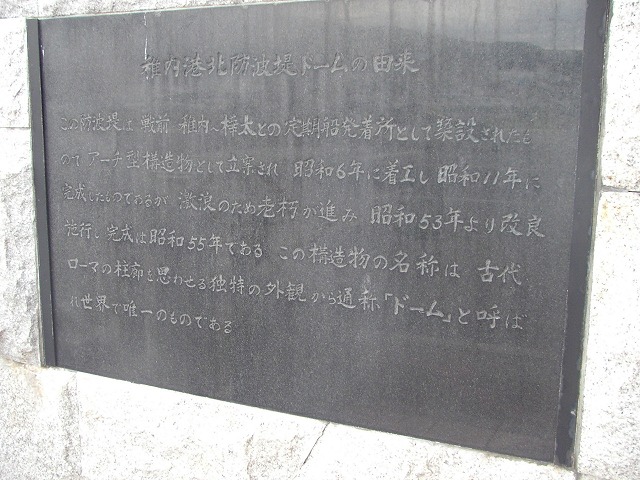 稚内港北防波堤ドームの由来
この防波堤は 戦前 稚内、樺太との定期船発着所として築設されたも
のて アーチ型構造物として立案され 昭和6年に着工し 昭和11年に
完成したものであるが 激浪のため老朽が進み 昭和53年より改良
施行し 完成は昭和55年である この構造物の名称は 古代
ローマの柱廊を思わせる独特の外観から通称「ドーム」と呼ば
れ世界で唯一のものである